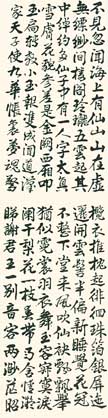 不見忽聞海上有仙山山在虛
無縹緲間樓閣玲瓏五雲起其
中綽約多仙子中有一人字太真
雪膚花貌參差是金闕西廂叩
玉扃轉教小玉報雙成聞道漢
家天子使九華帳裏夢魂驚
攬衣推枕起徘徊珠箔銀屏迤
邐開雲鬢半偏新睡覺花冠
不整下堂來風吹仙袂飄飄舉
猶似霓裳羽衣舞玉容寂寞淚
闌干梨花一枝春帶雨含情凝
睇謝君王一別音容兩渺茫昭